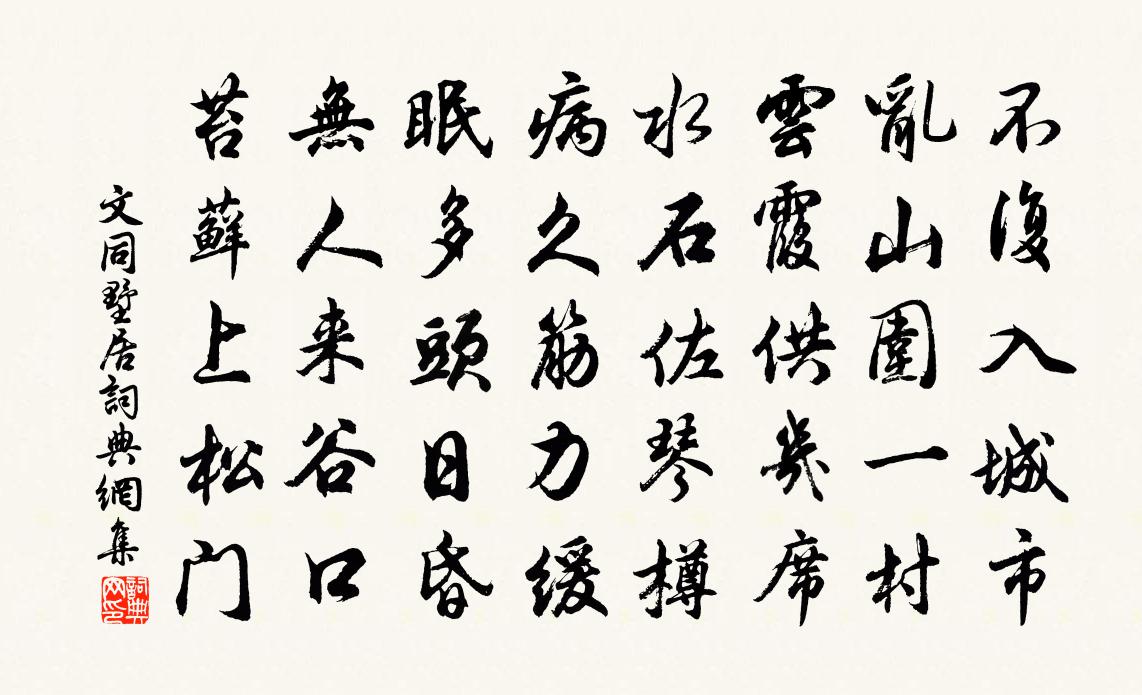 不復入城市
亂山圍一村
雲霞供幾席
水石佐琴樽
病久筋力緩
眠多頭日昏
無人来谷口
苔蘚上松门
文同墅居詞典網集
詞典网印